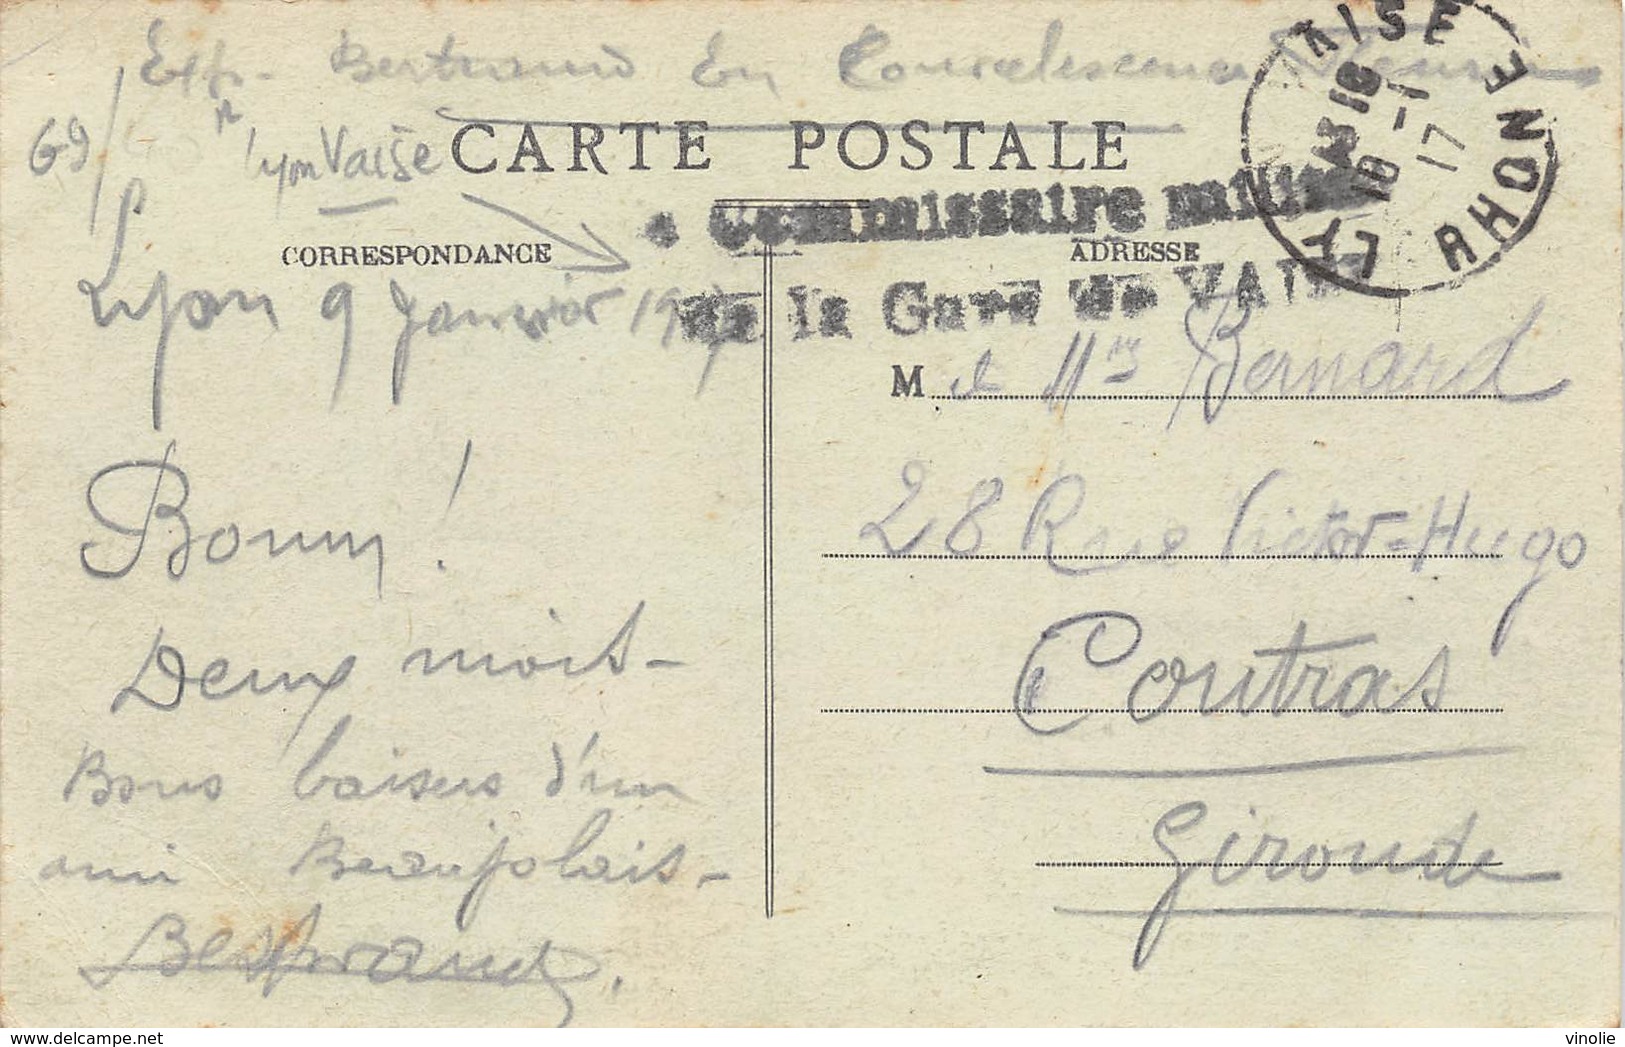 Exp. Bertrand En Convalescence
69/
Lyon Vaise
CARTE POSTALE
Commissaire milit
de la Gare de VAISE
LYON VAISE RHONE
18 10 -1 17
CORRESPONDANCE
ADRESSE
Lyon 9 Janvier 1917
Boum !
Deux mois -
Bons baisers d'un
ami Beaujolais -
Bertrand.
M et Mme Bernard
28 Rue Victor-Hugo
Coutras
Gironde
vinolie